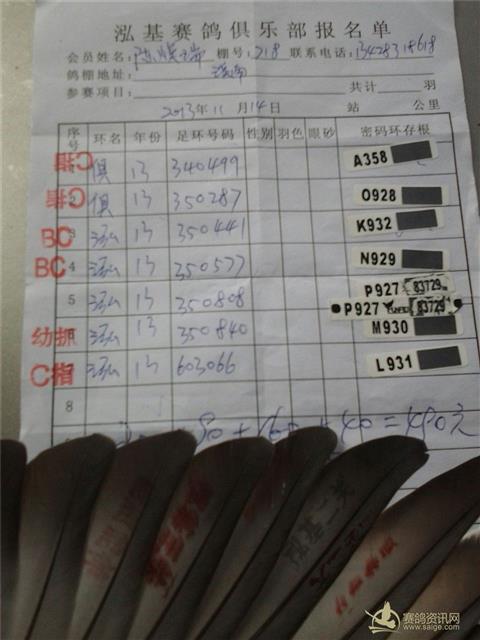 泓基赛鸽俱乐部报名单
会员姓名: 陈 棚号: 218 联系电话: 13428318618
鸽棚地址: 溪南
参赛项目: 共计 羽
2013年11月14日 站 公里
序号 环名 年份 足环号码 性别 羽色 眼砂 密码环存根
C指 俱 13 340499 A358
C指 2 俱 13 350287 O928
BC 3 泓 13 350441 K932
BC 4 泓 13 350577 N929
5 泓 13 350808 P927 83729
P927 83729
幼抓 泓 13 350840 M930
C指 泓 13 603066 L931
8
80+160+40=480元
泓基二关
赛鸽资讯网
www.saige.com